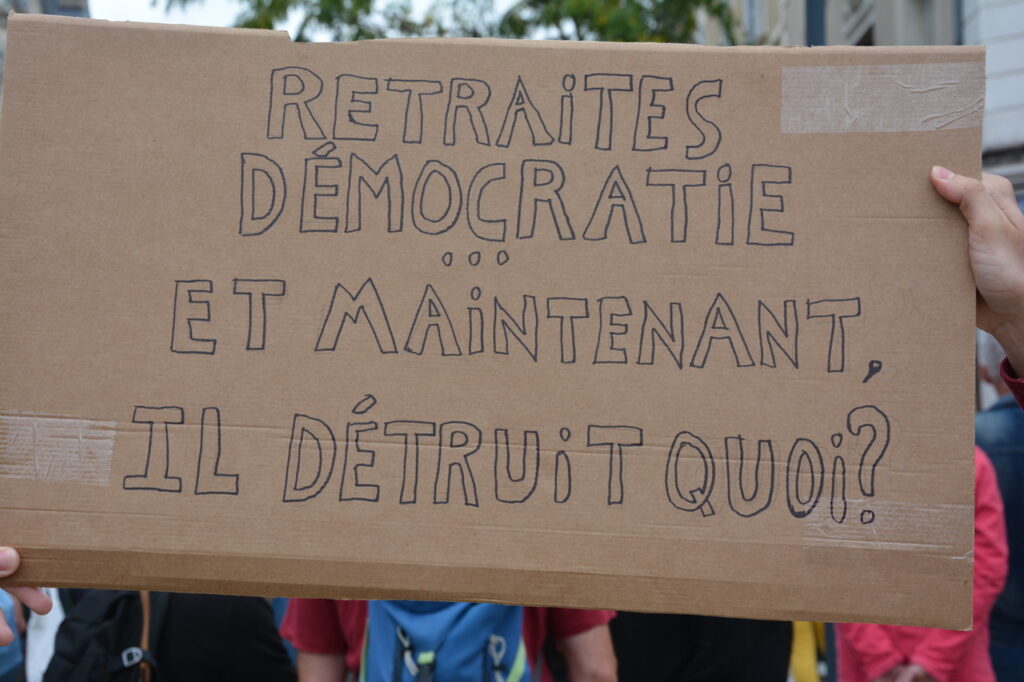 RETRAiTES
DÉMOCRATiE
...
ET MAiNTENANT,
IL DÉTRUiT QUOi?